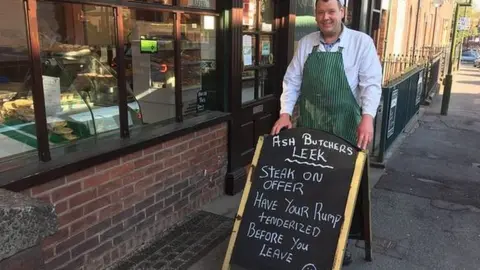 ASH BUTCHERS
LEEK
STEAK ON
OFFER
HAVE YOUR RUMP
TENDERIZED
BEFORE YOU
LEAVE